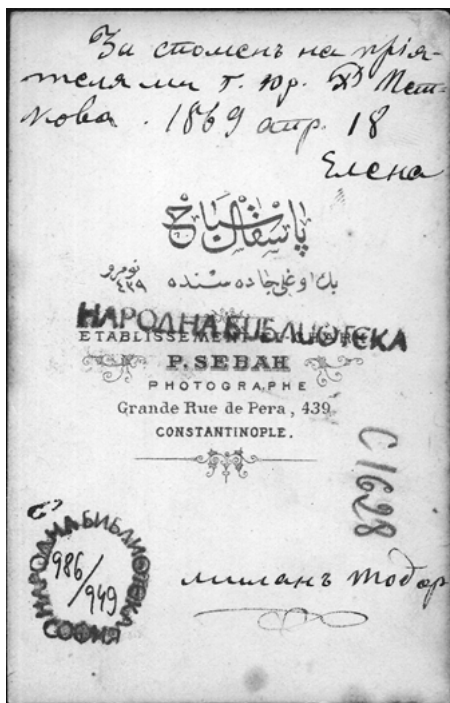 За споменъ на прія-
теля ми г. юр. Хр Пет-
кова . 1869 апр. 18
Елена
پاسقال صباح
بك اوغلی جاده سنده
نومرو
٤٣٩
НАРОДНА БИБЛИОТЕКА
ETABLISSEMENT
P. SEBAH
PHOTOGRAPHE
Grande Rue de Pera, 439
CONSTANTINOPLE.
C 1628
НАРОДНА БИБЛИОТЕКА
СОФИЯ
986/949
миланъ тодор